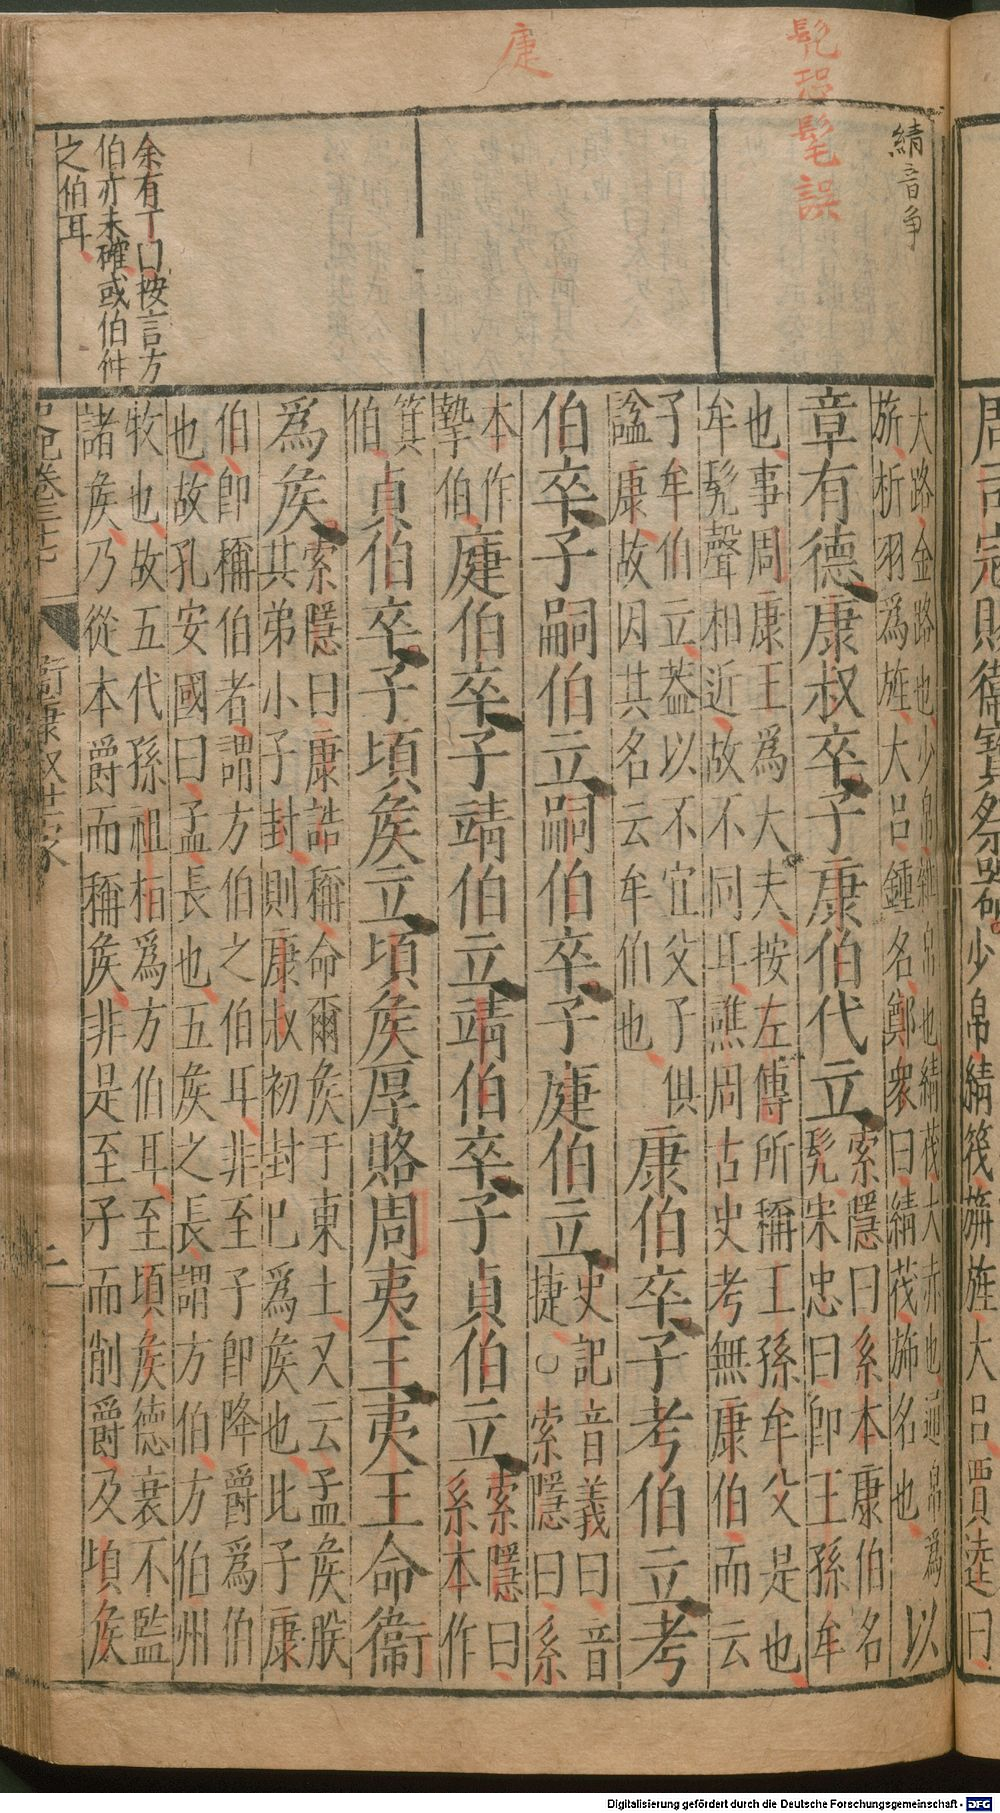 周司寇賜衛寶祭器少帛綪筏旃旌大呂賈逵曰
綪音爭
髡恐髦誤
疌
余有丁曰按言方
伯亦未確或伯仲
之伯耳
大路金路也少帛雜帛也綪茷大赤也通帛爲
旃析羽爲旌大呂鍾名鄭衆曰綪茷旆名也
以
章有德康叔卒子康伯代立
索隱曰系本康伯名
髡宋忠曰即王孫牟
也事周康王爲大夫按左傳所稱王孫牟父是也
牟髡聲相近故不同耳譙周古史考無康伯而云
子牟伯立蓋以不宜父子俱
諡康故因其名云牟伯也
康伯卒子考伯立考
伯卒子嗣伯立嗣伯卒子疌伯立
史記音義曰音
捷○索隱曰系
本作
摯伯
疌伯卒子靖伯立靖伯卒子貞伯立
索隱曰
系本作
箕
伯
貞伯卒子頃侯立頃侯厚賂周夷王夷王命衛
爲侯
索隱曰康誥稱命爾侯于東土又云孟侯朕
其弟小子封則康叔初封已爲侯也此子康
伯即稱伯者謂方伯之伯耳非至子即降爵爲伯
也故孔安國曰孟長也五侯之長謂方伯方伯州
牧也故五代孫祖柏爲方伯耳至頃侯德衰不監
諸侯乃從本爵而稱侯非是至子而削爵及頃侯
史記卷三十七 衛康叔世家 二
Digitalisierung gefördert durch die Deutsche Forschungsgemeinschaft - DFG